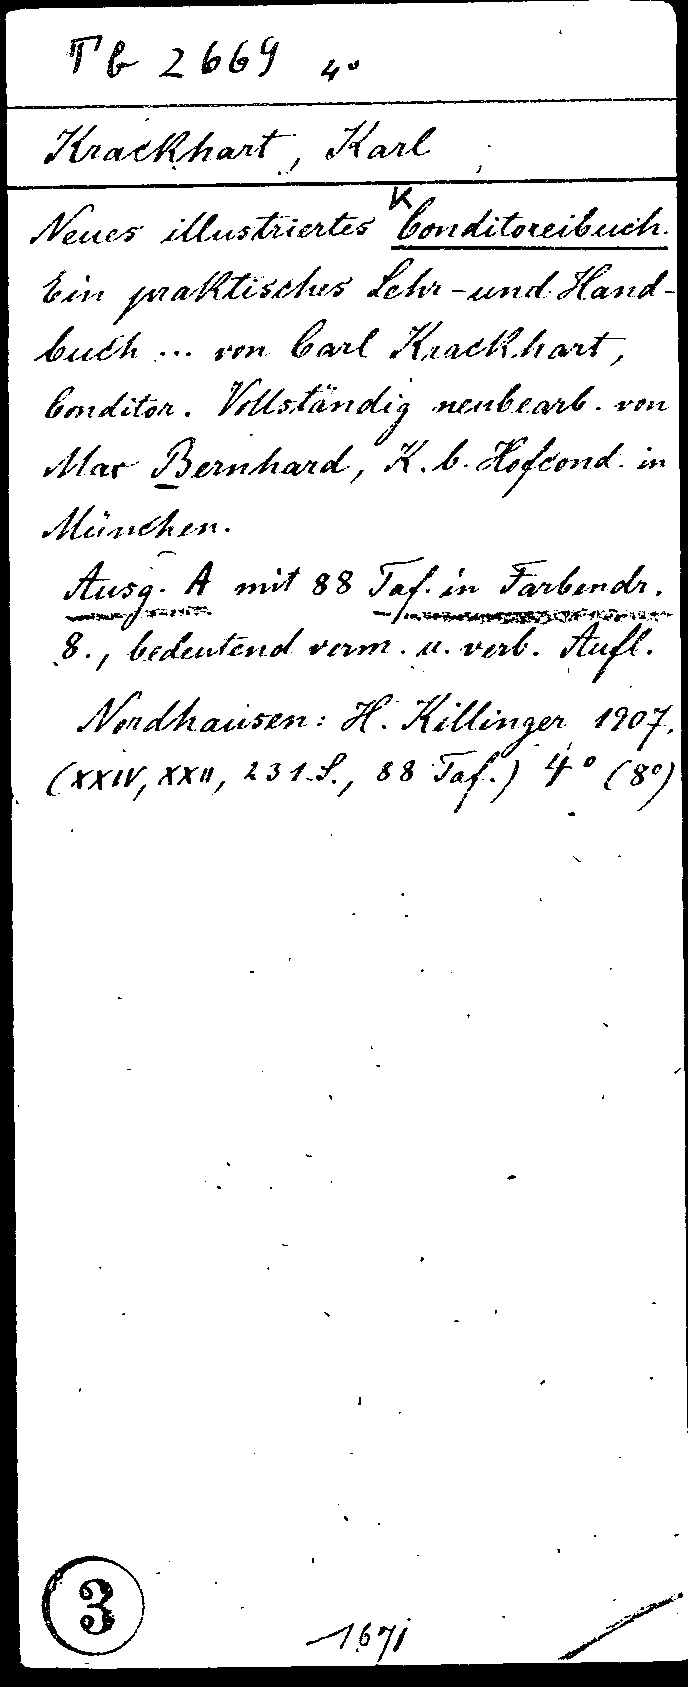 Tb 2669 4°
Krackhart, Karl
K
Neues illustriertes Conditoreibuch.
Ein praktisches Lehr- und Hand-
buch ... von Carl Krackhart,
Conditor. Vollständig neubearb. von
Max Bernhard, K. b. Hofcond. in
München.
Ausg. A mit 88 Taf. in Farbendr.
8., bedeutend verm. u. verb. Aufl.
Nordhausen: H. Killinger 1907.
(XXIV, XXII, 231 S., 88 Taf.) 4° (8°)
3
1671